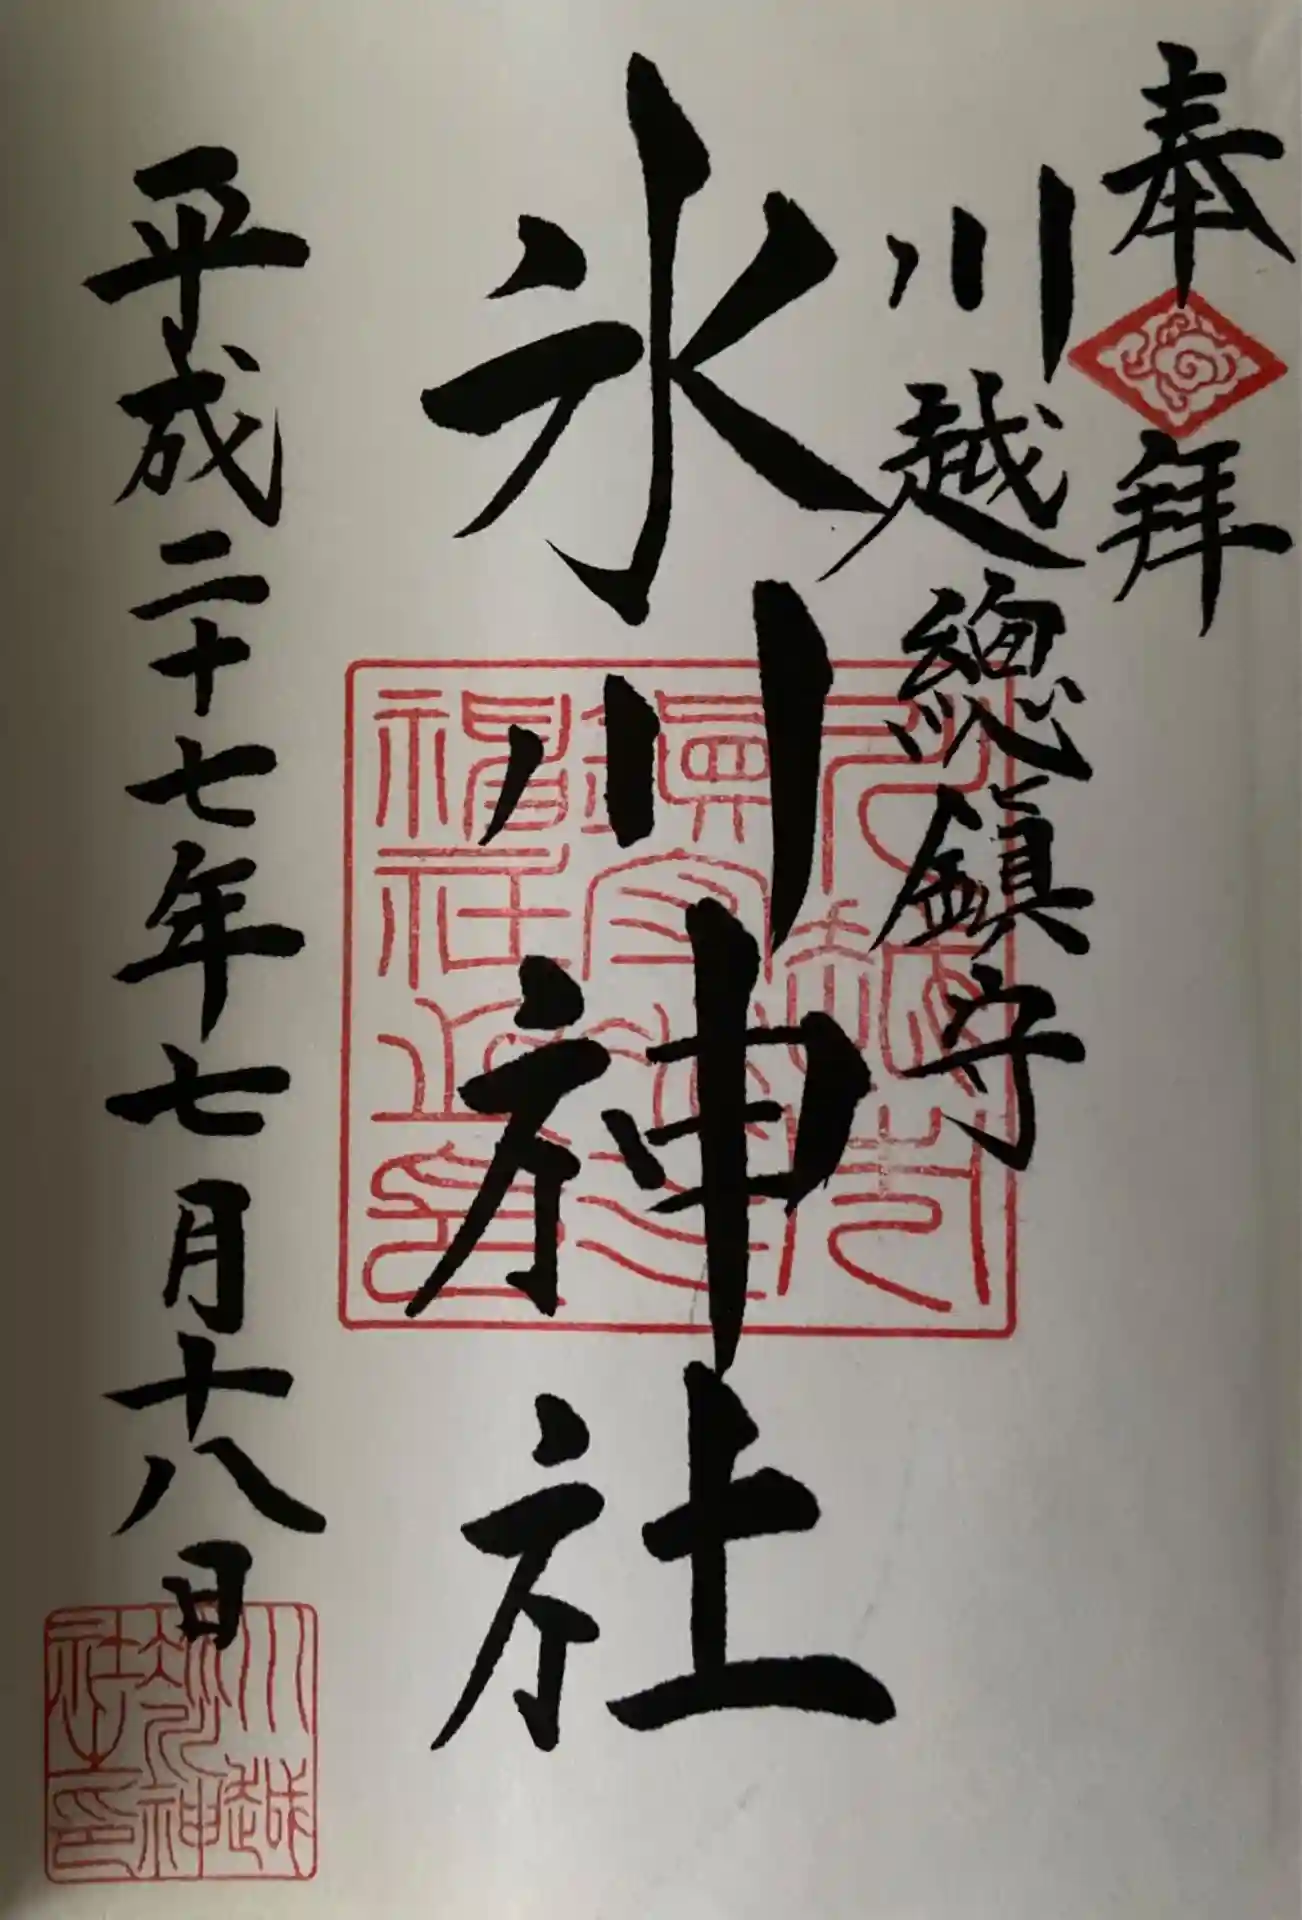 奉拜
川越總鎮守
氷川神社
平成二十七年七月十八日
川越
氷川神
社之印